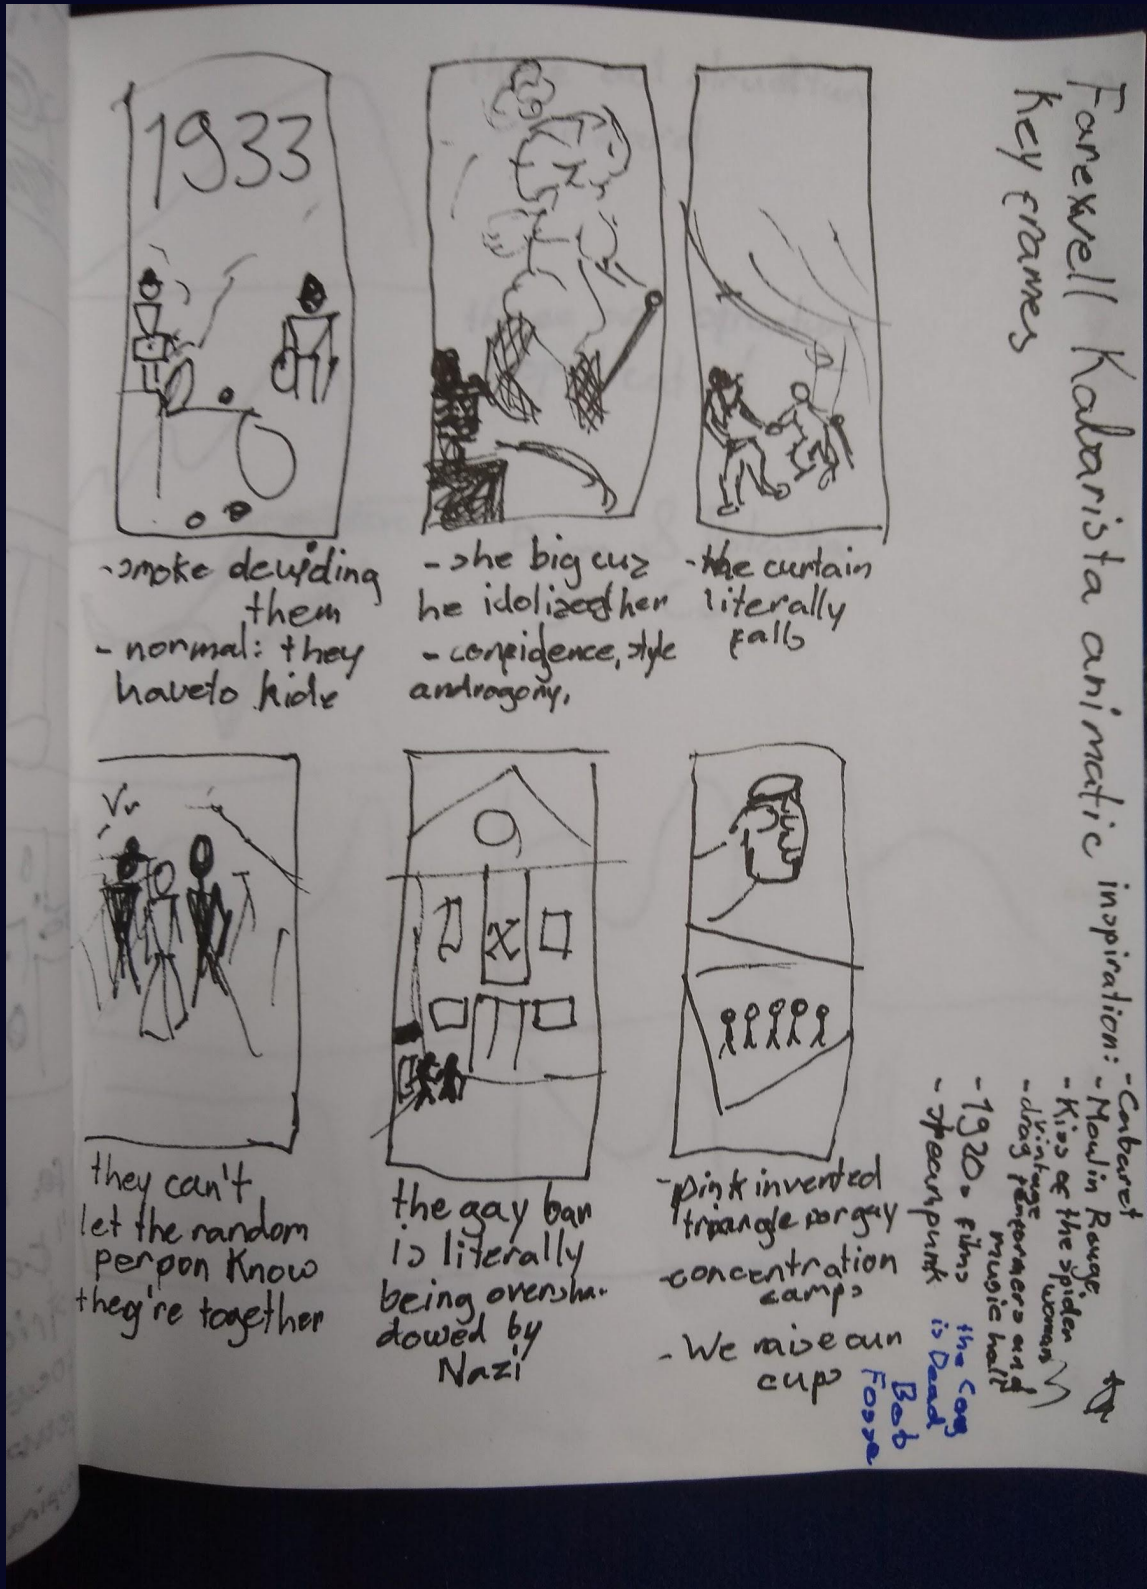 Farexwell Kabarista animatic inspiration:
Key frames
- Cabaret
- Moulin Rouge
- Kiss of the spider
woman
- vintage
drag performers and
music hall
- 1920s films
- steampunk
the Cag
is Dead
Bob
Fosse
1933
- smoke deviding
them
- normal: they
haveto hide
- she big cuz
he idolized her
- confidence, style
androgony,
- the curtain
literally
falls
they can't
let the random
person Know
they're together
the gay bar
is literally
being oversha-
dowed by
Nazi
- pink inverted
triangle for gay
- concentration
camps
- We raise our
cups